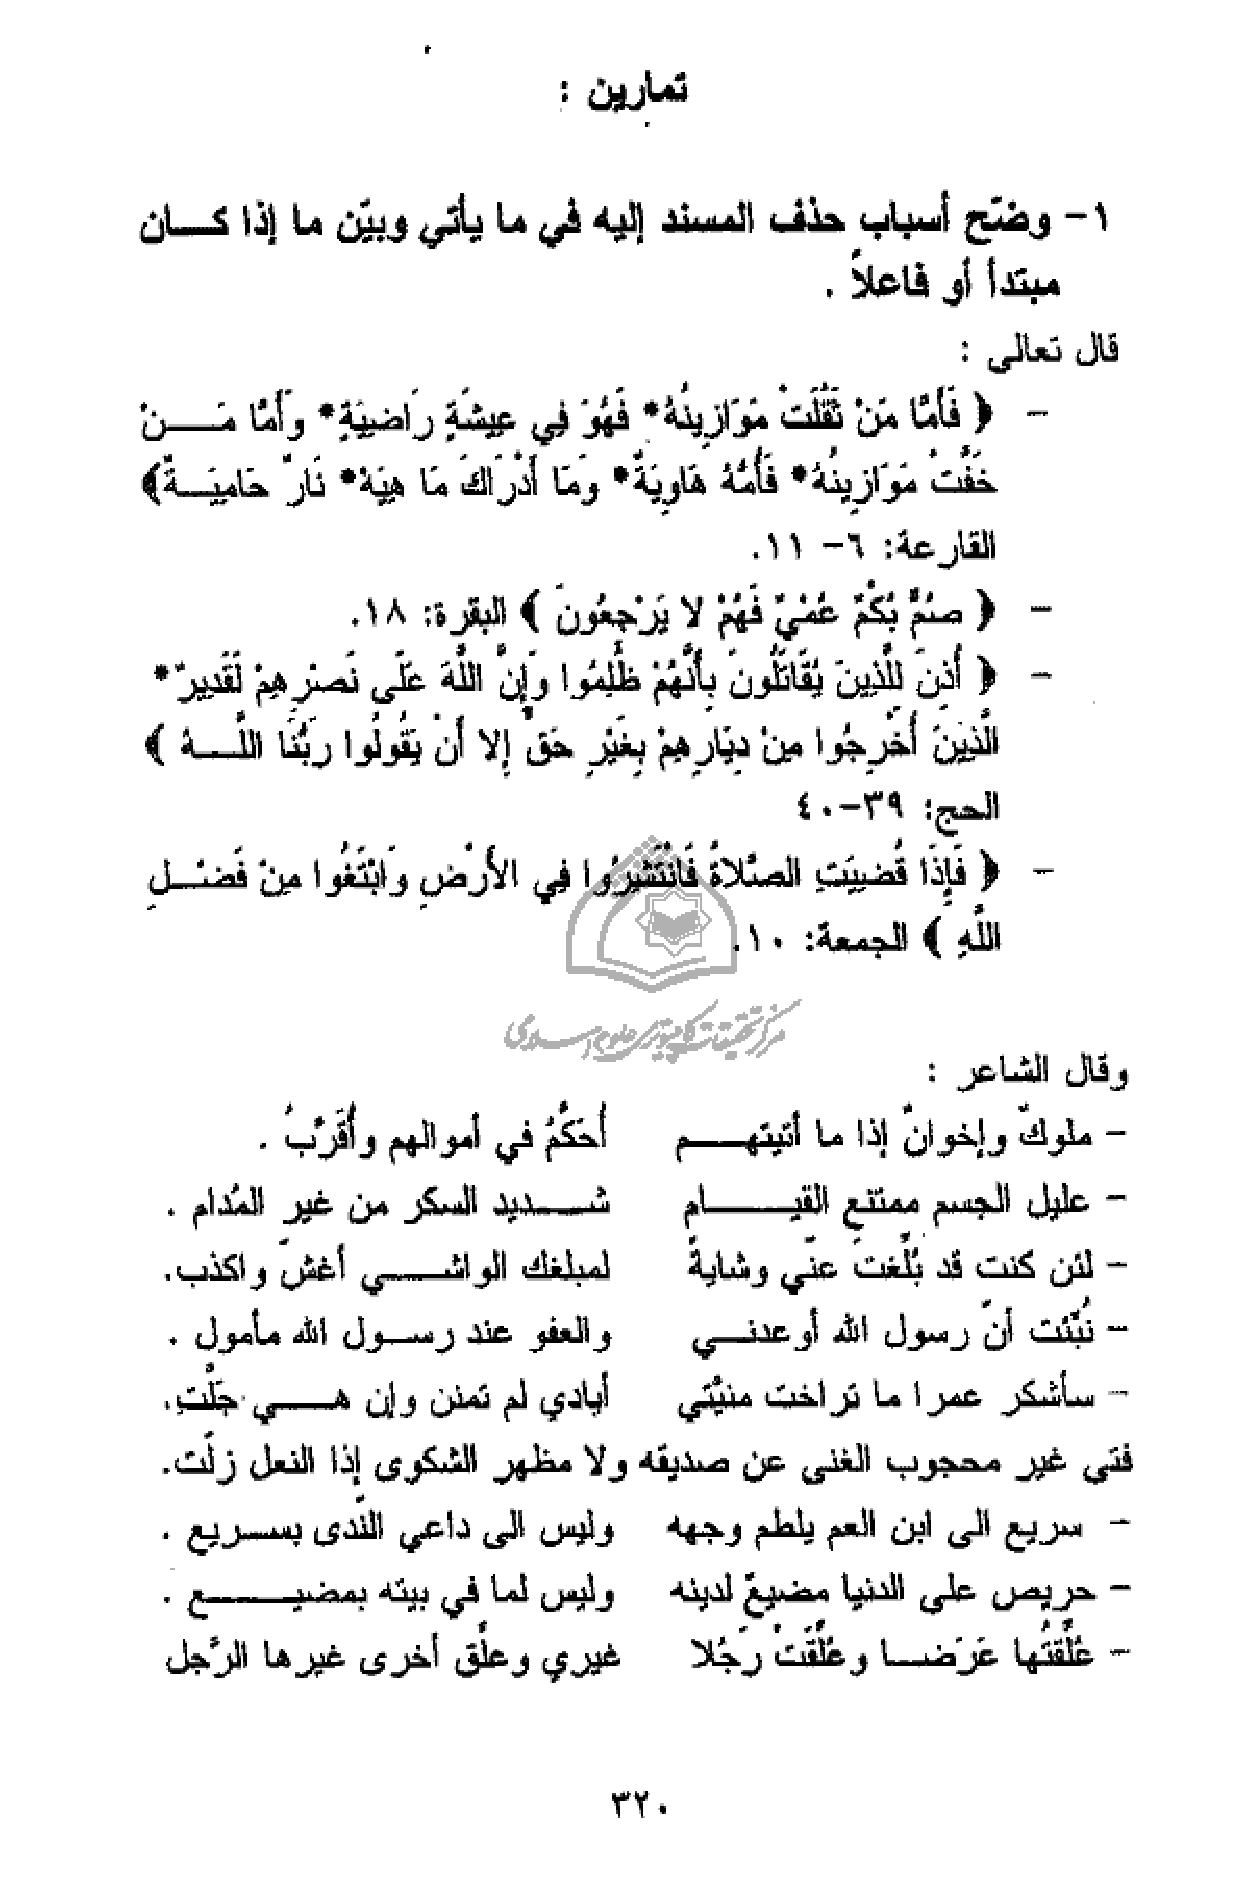 تمارين :
١- وضّح أسباب حذف المسند إليه في ما يأتي وبيّن ما إذا كـــان
مبتدأ أو فاعلاً .
قال تعالى :
- ﴿ فَأَمَّا مَنْ ثَقُلَتْ مَوَازِينُهُ* فَهُوَ فِي عِيشَةٍ رَاضِيَةٍ* وَأَمَّا مَـــنْ
خَفَّتْ مَوَازِينُهُ* فَأُمُّهُ هَاوِيَةٌ* وَمَا أَدْرَاكَ مَا هِيَهْ* نَارٌ حَامِيَــةٌ﴾
القارعة: ٦- ١١.
- ﴿ صُمٌّ بُكْمٌ عُمْيٌ فَهُمْ لا يَرْجِعُونَ ﴾ البقرة: ١٨.
- ﴿ أُذِنَ لِلَّذِينَ يُقَاتَلُونَ بِأَنَّهُمْ ظُلِمُوا وَإِنَّ اللَّهَ عَلَى نَصْرِهِمْ لَقَدِيرٌ*
الَّذِينَ أُخْرِجُوا مِنْ دِيَارِهِمْ بِغَيْرِ حَقٍّ إِلا أَنْ يَقُولُوا رَبُّنَا اللَّـــهُ ﴾
الحج: ٣٩-٤٠
- ﴿ فَإِذَا قُضِيَتِ الصَّلاةُ فَانْتَشِرُوا فِي الأَرْضِ وَابْتَغُوا مِنْ فَضْــلِ
اللَّهِ ﴾ الجمعة: ١٠.
مركز تحقيقات كامپيوترى علوم اسلامى
وقال الشاعر :
- ملوكٌ وإخوانٌ إذا ما أتيتهـــم أُحَكَّمُ في أموالهم وأُقَرَّبُ .
- عليل الجسم ممتنع القيـــــام شـــديد السكر من غير المُدام .
- لئن كنت قد بُلّغتَ عنّي وشايةً لمبلغك الواشـــي أغشّ واكذب.
- نُبّئت أنّ رسول الله أوعدنـــي والعفو عند رســول الله مأمول .
- سأشكر عمرا ما تراخت منيّتي أيادي لم تمنن وإن هـــي جَلّتِ.
فتى غير محجوب الغنى عن صديقه ولا مظهر الشكوى إذا النعل زلّت.
- سريع الى ابن العم يلطم وجهه وليس الى داعي النّدى بســريع .
- حريص على الدنيا مضيعٌ لدينه وليس لما في بيته بمضيـــــع .
- عُلِّقتُها عَرَضـــا وعُلِّقَتْ رَجُلا غيري وعلّق أخرى غيرها الرّجل
٣٢٠